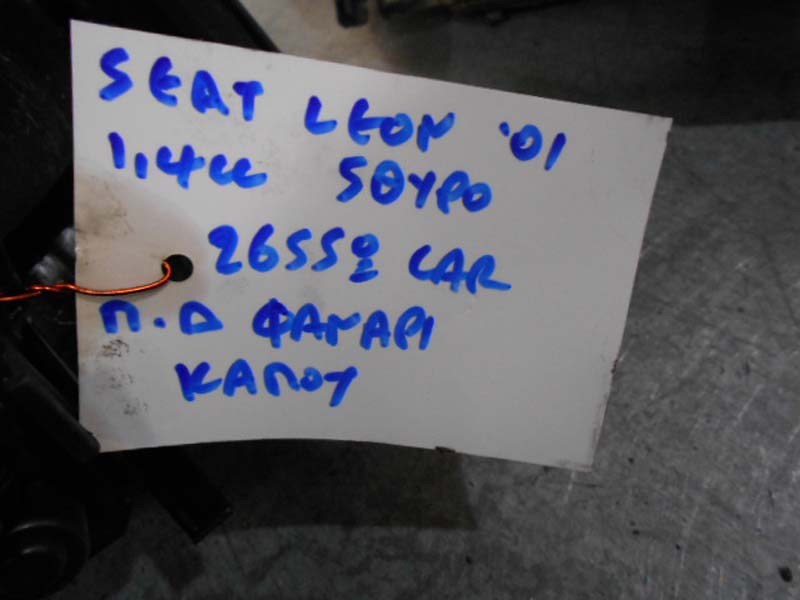 SEAT LEON '01
1,4cc 5ΘΥΡΟ
2655º CAR
Π.Δ ΦΑΝΑΡΙ
ΚΑΠΟΥ